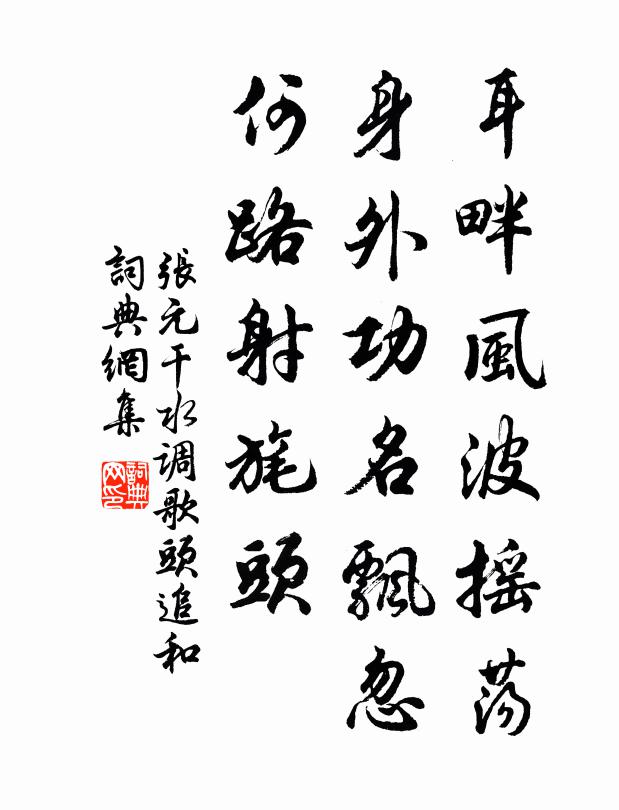 耳畔風波摇荡
身外功名飄忽
何路射旄頭
張元干水调歌頭追和
詞典網集
詞典网印